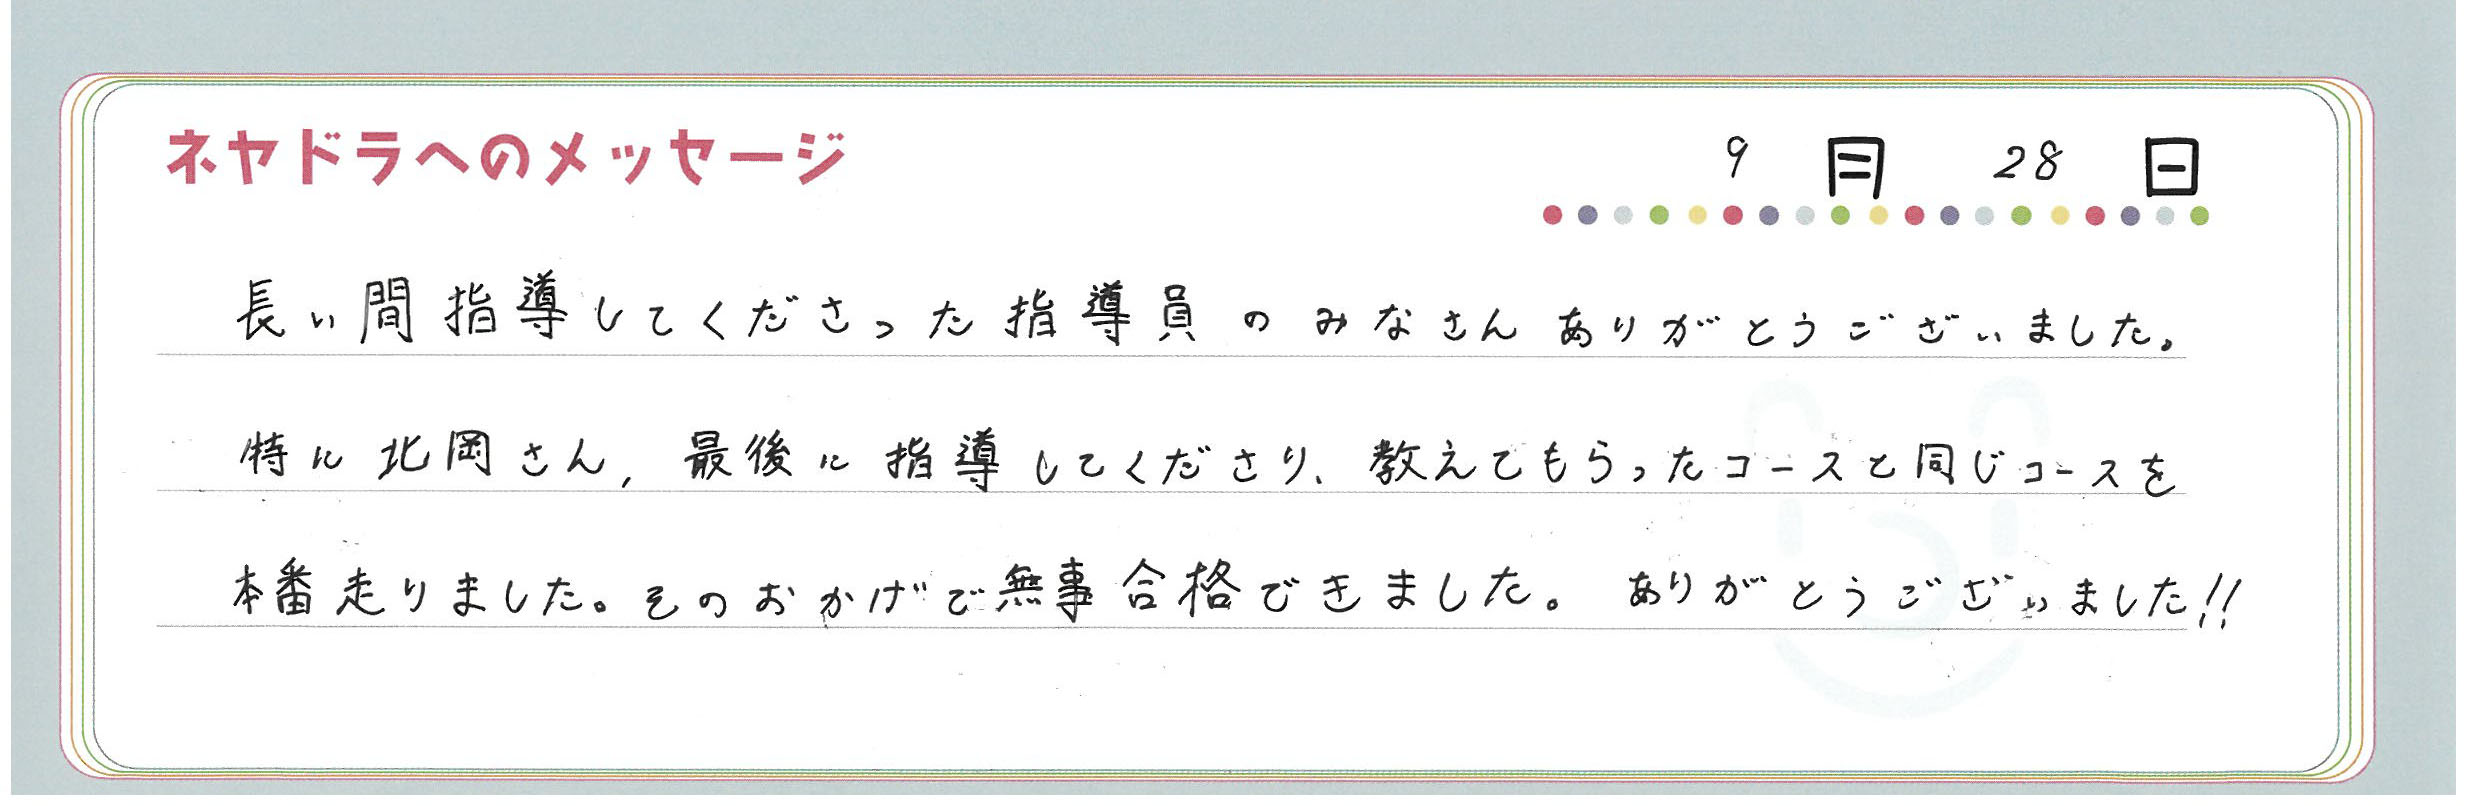 ネヤドラへのメッセージ
9月28日
長い間指導してくださった指導員のみなさんありがとうございました。
特に北岡さん,最後に指導してくださり、教えてもらったコースと同じコースを
本番走りました。そのおかげで無事合格できました。ありがとうございました!!